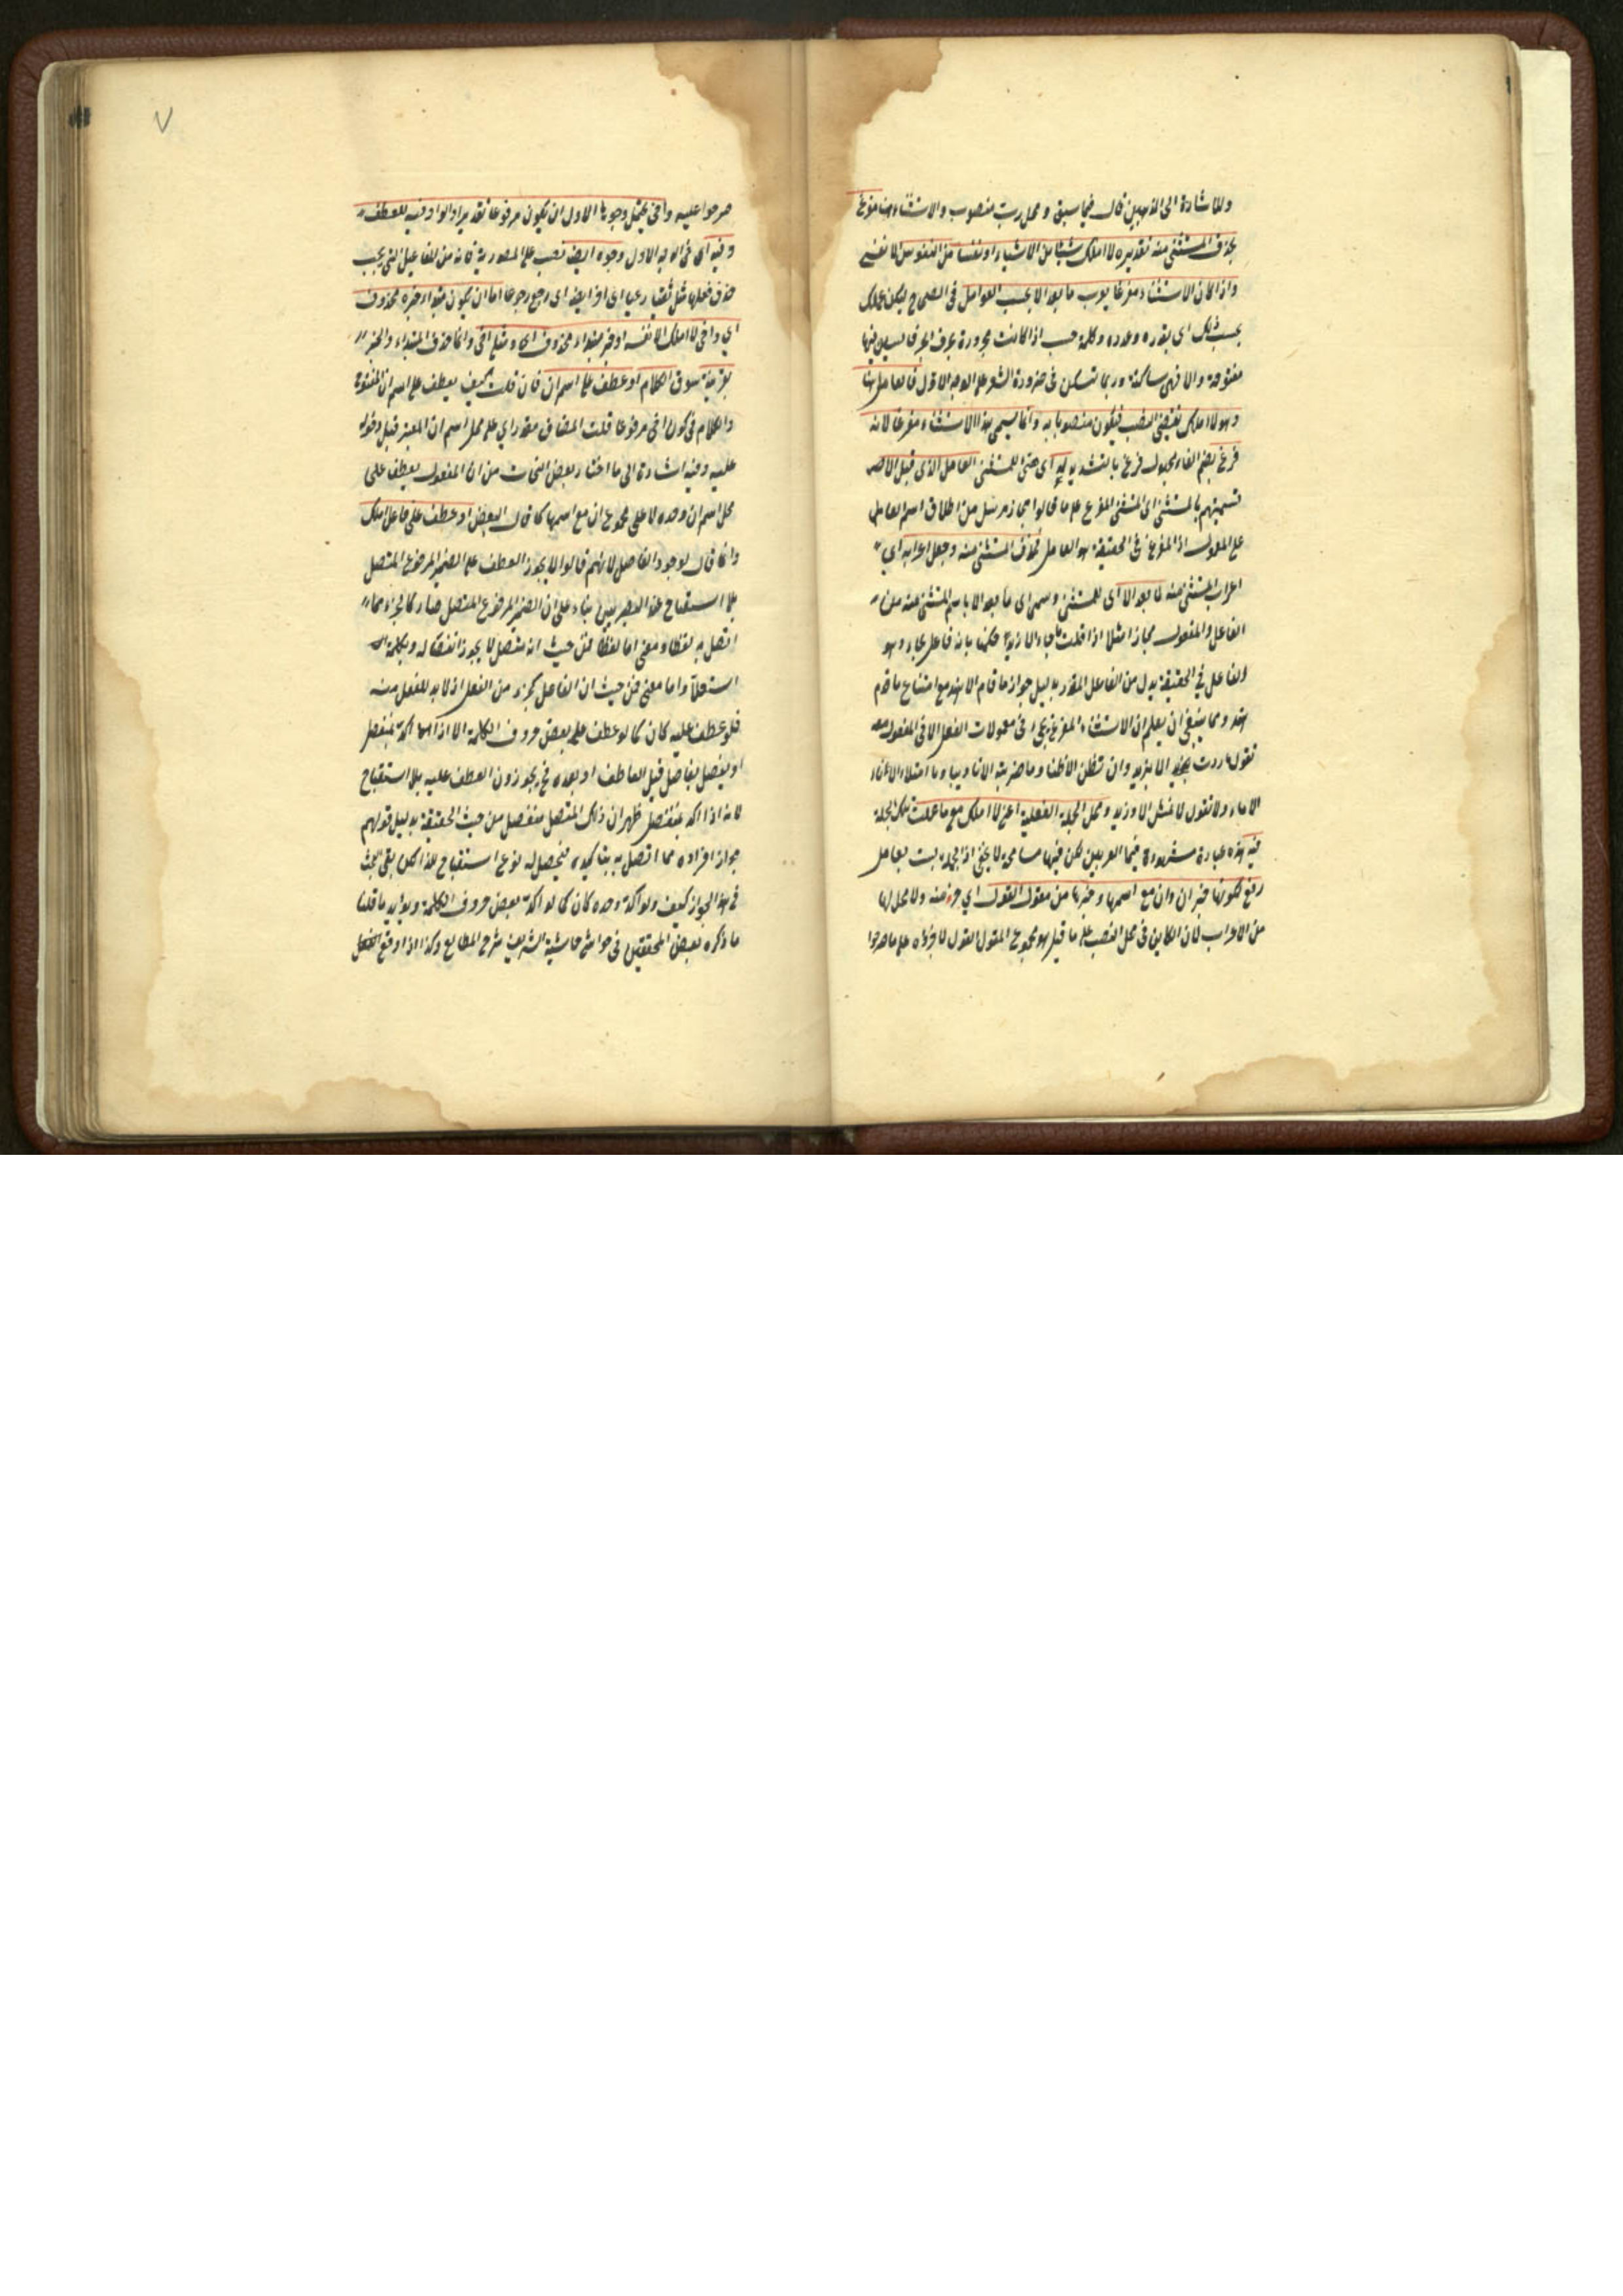 وللاشادة الى المذهبين قال فيما سبق ومحل رب منصوب والاستثناء هنا مفرغ
بحذف المستثنى منه تقديره لا املك شيئا من الاشياء او نفسا من النفوس الا نفسي
واذا كان الاستثناء مفرغا يعرب ما بعد الا بحسب العوامل في الصحاح ليكن عملك
بحسب ذلك اى بقدره وعدده وكلمة حسب اذا كانت مجرورة بحرف الجر فالسين فيها
مفتوحة والا فهى ساكنة وربما تسكن فى ضرورة الشعر على الوجه الاول فالعامل هنا
وهو لا املك يقتضى النصب فيكون منصوبا به وانما يسمى هذا الاستثناء مفرغا لانه
فرغ بضم الفاء مجهول فرغ بالتشديد له اى حتى المستثنى العامل الذى قبل الا فهـ
تسميتهم بالمستثنى اى المستثنى المفرغ على ما قالوا مجاز مرسل من اطلاق اسم العامل
على المعمول اذ المفرغ فى الحقيقة هو العامل فحذف المستثنى منه وجعل اعرابه اى
اعراب المستثنى منه لما بعد الا اى للمستثنى وسمى اى ما بعد الا باسم المستثنى منه من
الفاعل والمفعول مجازا مثلا اذا قلت ما جاء الا زيد حكمنا بانه فاعل جاء وهو
الفاعل فى الحقيقة بدل من الفاعل المقدر بدليل جواز ما قام الا هند مع امتناع ما قام
هند ومما ينبغى ان يعلم ان الاستثناء المفرغ يجىء فى معمولات الفعل الا فى المفعول معه
تقول ما مررت الا بزيد وان تظن الا ظنا وما ضربته الا تاديبا وما امتلاء الاناء
الا ماء ولا تقول لا تمش الا وزيد ومحل الجملة الفعلية اعنى لا املك مع ما عملت تلك الجملة
فيه هذه عبارة مشهودة فيما المعربين لكن فيها مسامحة لا يخفى اذ الجملة ليست بعامل
رفع لكونها خبر ان وان مع اسمها وخبرها من مقول القول اى جزء منه ولا محل لها
من الاعراب لان الكاين فى محل النصب على ما قيل هو مجموع المقول القول لا جزؤه على ما صرحوا
صرحوا عليه واخى يحتمل وجوها الاول ان يكون مرفوعا تقديرا والواو فيه للعطف
وفيه اى فى الوجه الاول وجوه ايضا نصب على المصدرية فانه من المفاعيل التى يجب
حذف فعلها مثل سقيا رعيا اى اض ايضا اى رجع رجوعا اما ان يكون مبتداء خبره محذوف
اى واخى لا املك الا نفسه او خبر مبتداء محذوف اى ومثلى اخى وانما حذف المبتداء والخبر
بقرينة سوق الكلام او عطف على اسم ان فان قلت كيف يعطف على اسم ان المفتوحة
والكلام فى كون اخى مرفوعا قلت المضاف مقدر اى على محل اسم ان المعتبر قبل دخولها
عليه وفيه اشارة الى ما اختار بعض النحات من ان المفعول يعطف على
محل اسم ان وحده لا على مجموع ان مع اسمها كما قال البعض او عطف على فاعل املك
وانما قال لوجود الفاصل لانهم قالوا لا يجوز العطف على الضمير المرفوع المتصل
بلا استقباح عند البصريين بناء على ان الضمير المرفوع المتصل صار كالجزء مما
اتصل به لفظا ومعنى اما لفظا فمن حيث انه متصل لا يجوز انفصاله
استعمالا واما معنى فمن حيث ان الفاعل كجزء من الفعل اذ لا بد للفعل منه
فلو عطف عليه كان كما لو عطف على بعض حروف الكلمة الا اذا اكد بمنفصل
او يفصل بفاصل قبل العاطف او بعده فح يجوزون العطف عليه بلا استقباح
لانه اذا اكد بمنفصل ظهر ان ذلك المتصل منفصل من حيث الحقيقة بدليل قولهم
جواز افراده مما اتصل به بتاكيده فيحصل له نوع استقباح هذا لكن بقى بحث
فى هذا الجواز كيف ولو اكد وحده كان كما لو اكد بعض حروف الكلمة ويؤيد ما قلنا
ما ذكره بعض المحققين فى حواشى حاشية الشريف شرح المطالع وكذا اذا وقع الفصل
٧